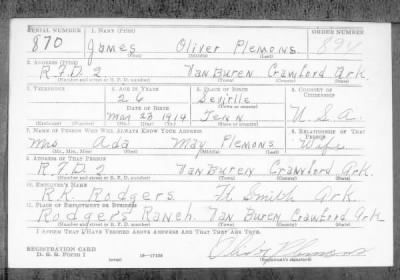 SERIAL NUMBER 1. NAME (Print) ORDER NUMBER
870 James Oliver Plemons 894
(First) (Middle) (Last)
2. ADDRESS (Print)
R.F.D. 2 Van Buren Crawford Ark.
(Number and street or R. F. D. number) (Town) (County) (State)
3. TELEPHONE 4. AGE IN YEARS 5. PLACE OF BIRTH 6. COUNTRY OF CITIZENSHIP
26 Seville
DATE OF BIRTH (Town or county)
Mar 23 1914 Tenn U.S.A.
(Exchange) (Number) (Mo.) (Day) (Yr.) (State or country)
7. NAME OF PERSON WHO WILL ALWAYS KNOW YOUR ADDRESS 8. RELATIONSHIP OF THAT PERSON
Mrs Ada May Plemons Wife
(Mr., Mrs., Miss) (First) (Middle) (Last)
9. ADDRESS OF THAT PERSON
R.F.D. 2 Van Buren Crawford Ark.
(Number and street or R. F. D. number) (Town) (County) (State)
10. EMPLOYER'S NAME
R.K. Rodgers Ft Smith Ark
11. PLACE OF EMPLOYMENT OR BUSINESS
Rodgers Ranch Van Buren Crawford Ark
(Number and street or R. F. D. number) (Town) (County) (State)
I AFFIRM THAT I HAVE VERIFIED ABOVE ANSWERS AND THAT THEY ARE TRUE.
REGISTRATION CARD
D. S. S. Form 1 (over) 16—17105 (Registrant's signature)